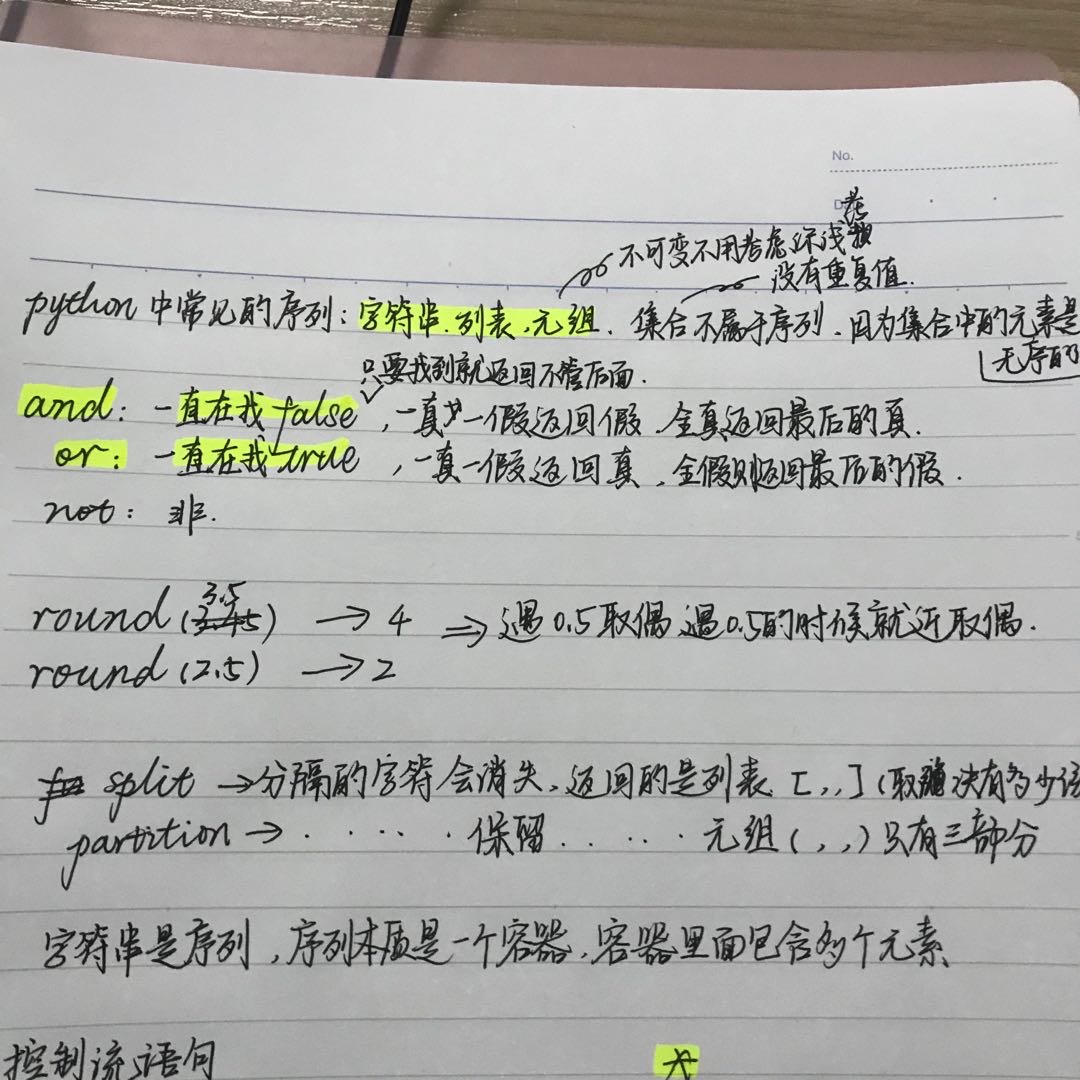 No.
不可变不用考虑深浅拷
没有重复值.
python中常见的序列:字符串.列表.元组. 集合不属于序列.因为集合中的元素是
无序的
只要找到就返回不管后面.
and: 一直在找false,一真一假返回假.全真返回最后的真.
or: 一直在找true,一真一假返回真.全假则返回最后的假.
not: 非.
3.5
round( ) → 4 ⇒ 遇0.5取偶 遇0.5的时候就近取偶.
round(2.5) → 2
split →分隔的字符会消失.返回的是列表 [,,] (取决有多少该
partition → . . . . . 保留 . . . . 元组(,,)只有三部分
字符串是序列,序列本质是一个容器,容器里面包含多个元素
控制流语句